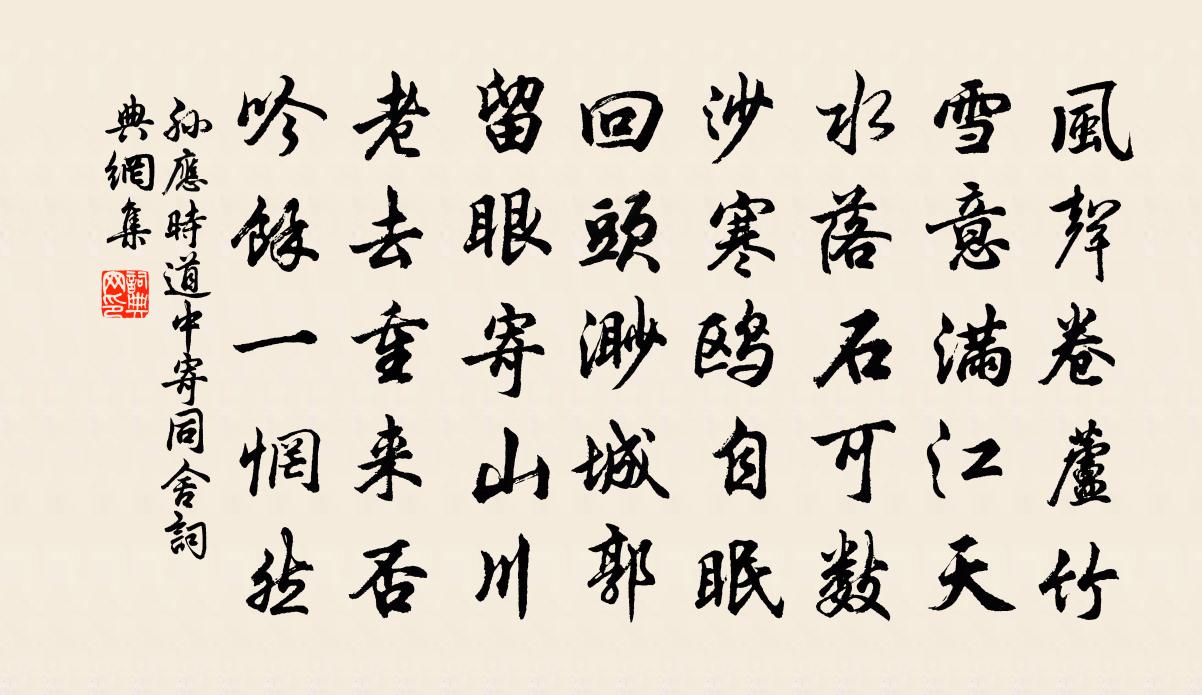 風聲卷蘆竹
雪意滿江天
水落石可數
沙寒鸥自眠
回頭渺城郭
留眼寄山川
老去重来否
吟餘一惘然
孙應時道中寄同舍詞
典網集
詞典
网印